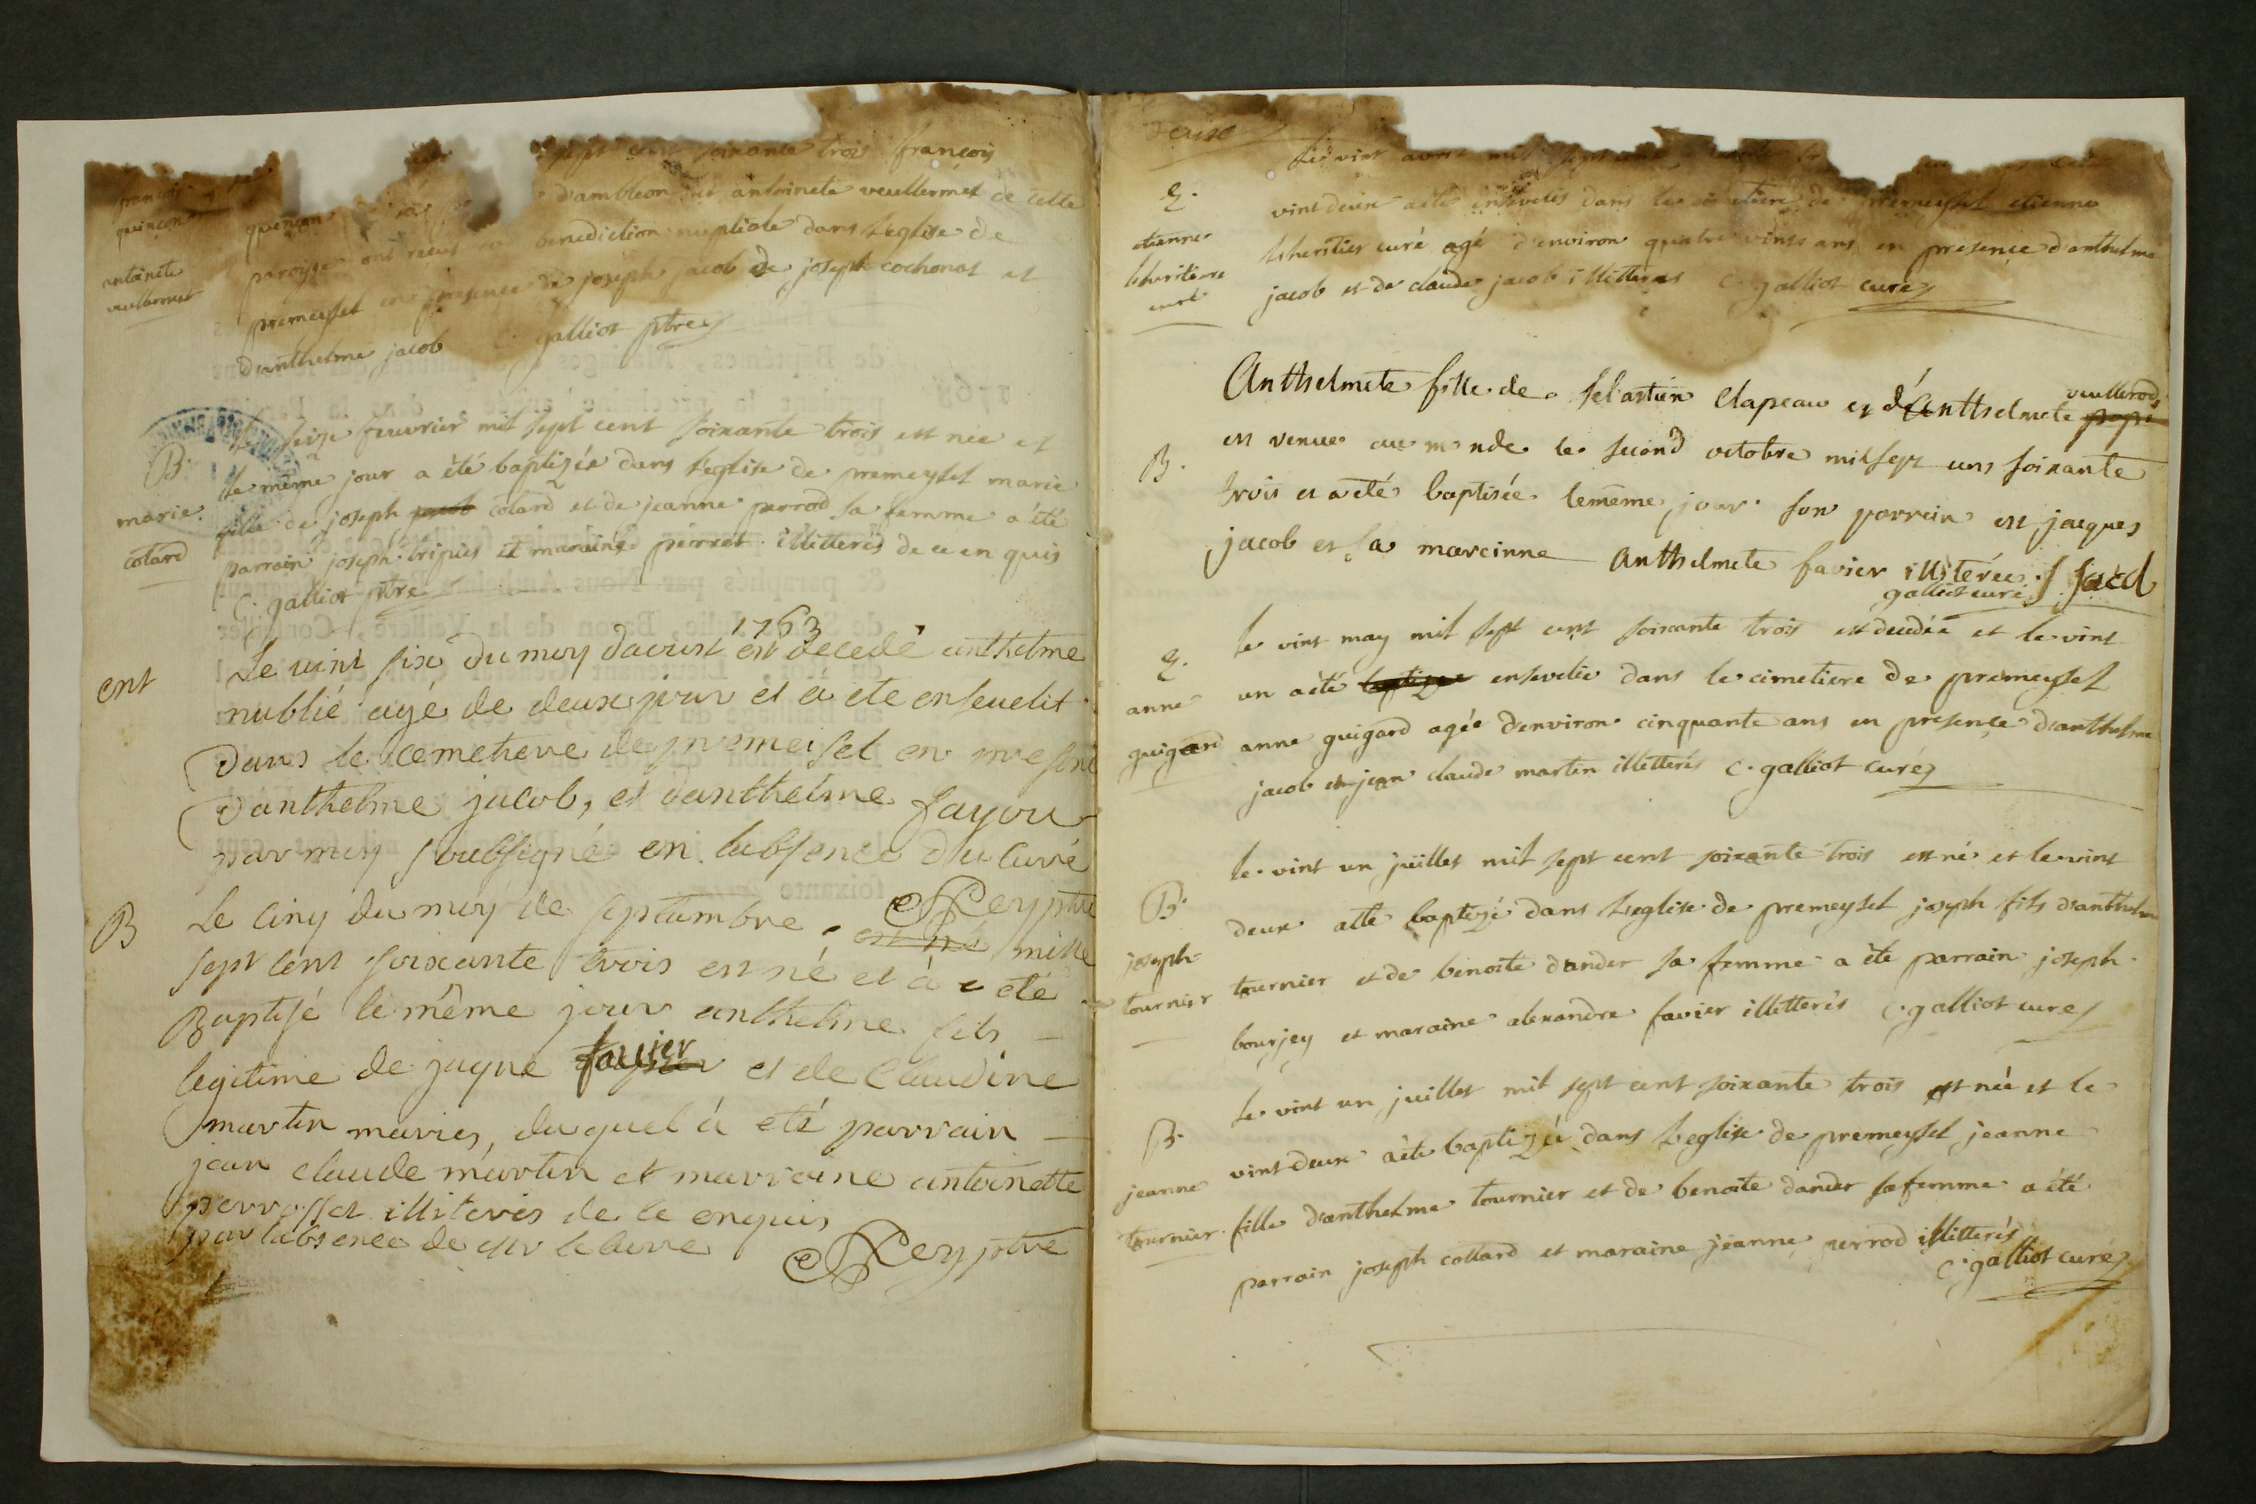 sept cent soixante trois françois
quinçon d'ambleon antoinete veullermet de cette
quinçon
antoinete
veullermet
paroisse ont receus benediction nuptiale dans l'eglise de
premeysel en presence de joseph jacob de joseph cochonat et
d'anthelme jacob C. galliot ptre
seize feuvrier mil sept cent soixante trois est née et
B.
marie
colard
le même jour a été baptizée dans l'eglise de premeysel marie
fille de joseph colard et de jeanne perrod sa femme a été
parrain joseph tripier et maraine pierret illitterés de ce en quis
C. galliot ptre
1763
ent
Le vint six du moy daoust est decedé anthelme
nublié agé de deux jour et à ete enseuelit
Dans le cemetiere de premeisel en presence
d'anthelme jacob, et d'anthelme fayou
par moy soubsigné en labsence du curé
Rey ptre
B
Le cinq du moy de septembre est né mille
sept cent soixante trois est né et à eté
Baptisé le même jour anthelme fils
legitime de jaque favier et de Claudine
martin mariés, duquel à eté parrain
jean claude martin et marraine antoinette
perrosset illiterés de ce enquis
par labsence de mr le cure Rey ptre
Le vint avril mil sept cent
E.
etienne
lheritier
curé
vint deux a été enseveli dans le cimetiere de premeysel etienne
lheritier curé agé d'environ quatre vints ans en presence d'anthelme
jacob et de claude jacob illitterés C. galliot curé
B.
Anthelmete fille de Sebastien Clapeau et d'Anthelmete veullerod
est venue au monde le second octobre mil sept cens soixante
trois et a été baptisée le même jour son parrein est jacques
jacob et sa mareinne Anthelmete favier illiterée. J Jacob
galliot curé
E.
anne
guigard
le vint may mil sept cent soixante trois est decedée et le vint
un a été baptizée ensevelie dans le cimetiere de premeysel
anne guigard agée d'environ cinquante ans en presence d'anthelme
jacob et jean claude martin illitterés C. galliot curé
B.
joseph
tournier
le vint un juillet mil sept cent soixante trois est né et le vint
deux a été baptizé dans l'eglise de premeysel joseph fils d'anthelme
tournier et de benoite dander sa femme a été parrain joseph
bourjey et maraine alexandre favier illitterés C. galliot curé
B.
jeanne
tournier
le vint un juillet mil sept cent soixante trois est née et le
vint deux a été baptizée dans l'eglise de premeysel jeanne
fille d'anthelme tournier et de benoite dander sa femme a été
parrain joseph collard et maraine jeanne perrod illitterés
C. galliot curé